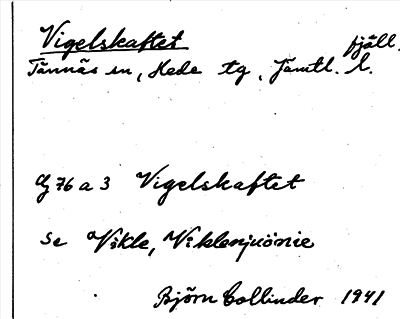 Vigelskaftet fjäll.
Tännäs sn, Hede tg, Jämtl. l.
Vigelskaftet
se Vikle, Viklenjuönie
Björn Collinder 1941